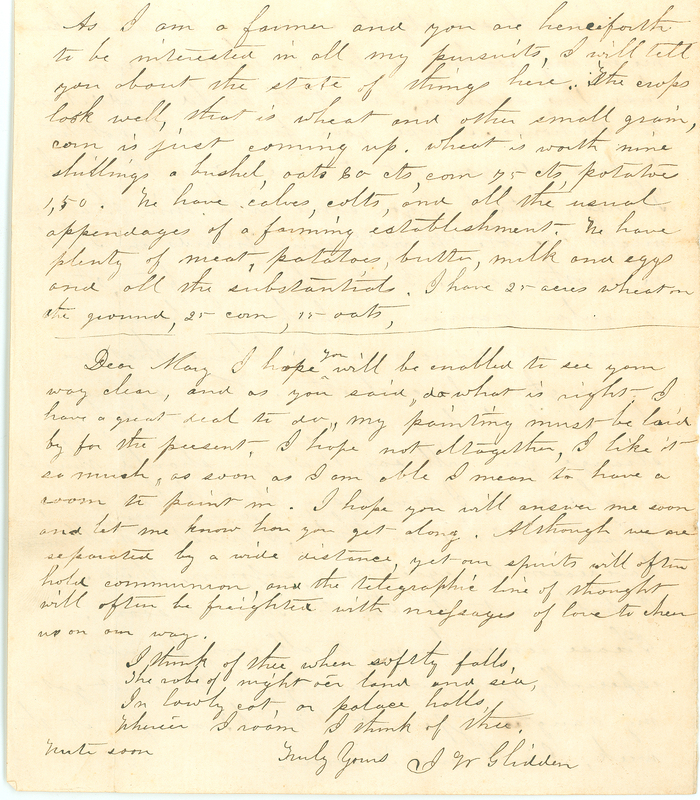 As I am a farmer and you are henceforth
to be interested in all my pursuits, I will tell
you about the state of things here. The crops
look well, that is wheat and other small grain,
corn is just coming up. wheat is worth nine
shillings a bushel, oats 60 cts, corn 75 cts, potatoes
1,50. We have calves, colts, and all the usual
appendages of a farming establishment. We have
plenty of meat, potatoes, butter, milk and eggs
and all the substantials. I have 25 acres wheat on
the ground, 25 corn, 15 oats,
Dear Mary I hope you will be enabled to see your
way clear, and as you said, do what is right. I
have a great deal to do, my painting must be laid
by for the present, I hope not altogether, I like it
so much, as soon as I am able I mean to have a
room to paint in. I hope you will answer me soon
and let me know how you get along. Although we are
separated by a wide distance, yet our spirits will often
hold communion, and the telegraphic line of thought
will often be freighted with messages of love to cheer
us on our way.
I think of thee when softly falls,
The robe of night o'er land and sea,
In lowly cot, or palace halls,
Where'er I roam I think of thee.
Write soon Truly Yours J W Glidden